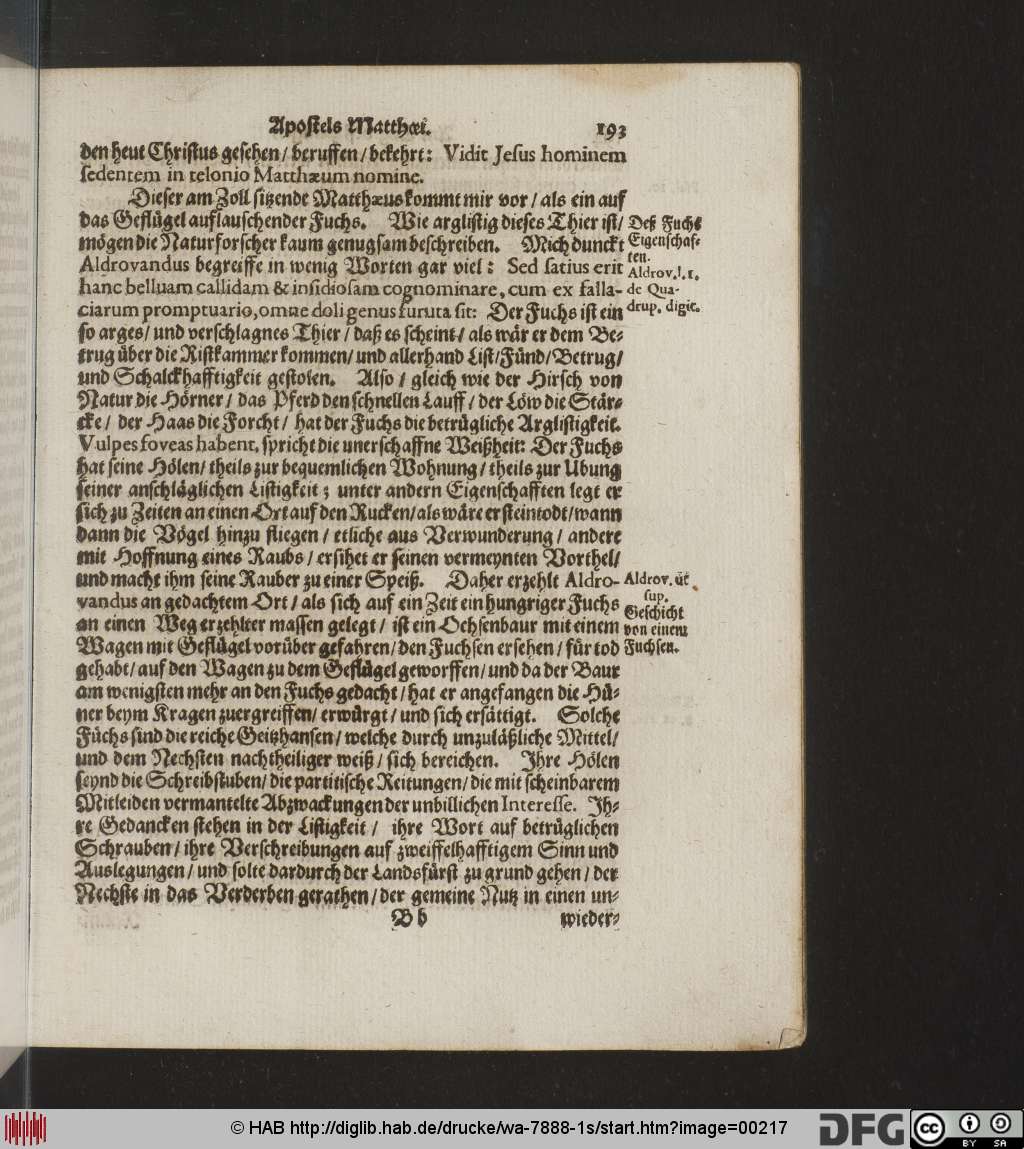 Apostels Matthæi. 193
den heut Christus gesehen/ beruffen/ bekehrt: Vidit Jesus hominem
sedentem in telonio Matthæum nomine.
Dieser am Zoll sitzende Matthæus kommt mir vor/ als ein auf
das Geflügel auflauschender Fuchs. Wie arglistig dieses Thier ist/
mögen die Naturforscher kaum genugsam beschreiben. Mich dunckt
Aldrovandus begreiffe in wenig Worten gar viel: Sed satius erit
hanc belluam callidam & insidiosam cognominare, cum ex falla-
ciarum promptuario, omne doli genus furuta sit: Der Fuchs ist ein
so arges/ und verschlagnes Thier/ daß es scheint/ als wär er dem Be-
trug über die Ristkammer kommen/ und allerhand List/ Fünd/ Betrug/
und Schalckhafftigkeit gestolen. Also/ gleich wie der Hirsch von
Natur die Hörner/ das Pferd den schnellen Lauff/ der Löw die Stär-
cke/ der Haas die Forcht/ hat der Fuchs die betrügliche Arglistigkeit.
Vulpes foveas habent, spricht die unerschaffne Weißheit: Der Fuchs
hat seine Hölen/ theils zur bequemlichen Wohnung/ theils zur Ubung
seiner anschläglichen Listigkeit; unter andern Eigenschafften legt er
sich zu Zeiten an einen Ort auf den Rucken/ als wäre er steintodt/ wann
dann die Vögel hinzu fliegen/ etliche aus Verwunderung/ andere
mit Hoffnung eines Raubs/ ersihet er seinen vermeynten Vorthel/
und macht ihm seine Rauber zu einer Speiß. Daher erzehlt Aldro-
vandus an gedachtem Ort/ als sich auf ein Zeit ein hungriger Fuchs
an einen Weg erzehlter massen gelegt/ ist ein Ochsenbaur mit einem
Wagen mit Geflügel vorüber gefahren/ den Fuchsen ersehen/ für tod
gehabt/ auf den Wagen zu dem Geflügel geworffen/ und da der Baur
am wenigsten mehr an den Fuchs gedacht/ hat er angefangen die Hü-
ner beym Kragen zuergreiffen/ erwürgt/ und sich ersättigt. Solche
Füchs sind die reiche Geitzhansen/ welche durch unzuläßliche Mittel/
und dem Nechsten nachtheiliger weiß/ sich bereichen. Ihre Hölen
seynd die Schreibstuben/ die partitische Reitungen/ die mit scheinbarem
Mitleiden vermantelte Abzwackungen der unbillichen Interesse. Ih-
re Gedancken stehen in der Listigkeit/ ihre Wort auf betrüglichen
Schrauben/ ihre Verschreibungen auf zweiffelhafftigem Sinn und
Auslegungen/ und solte dardurch der Landsfürst zu grund gehen/ der
Nechste in das Verderben gerathen/ der gemeine Nutz in einen un-
Bb wieder-
Deß Fuchs
Eigenschaf-
ten.
Aldrov. l. 1.
de Qua-
drup. digit.
Aldrov. ut
sup.
Geschicht
von einem
Fuchsen.
© HAB http://diglib.hab.de/drucke/wa-7888-1s/start.htm?image=00217
DFG
cc BY SA